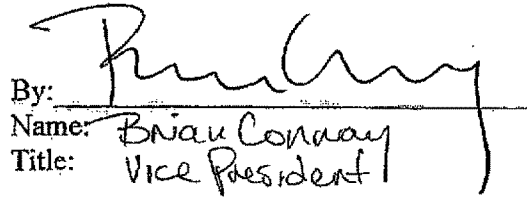 By:
Name: Brian Conway
Title: Vice President